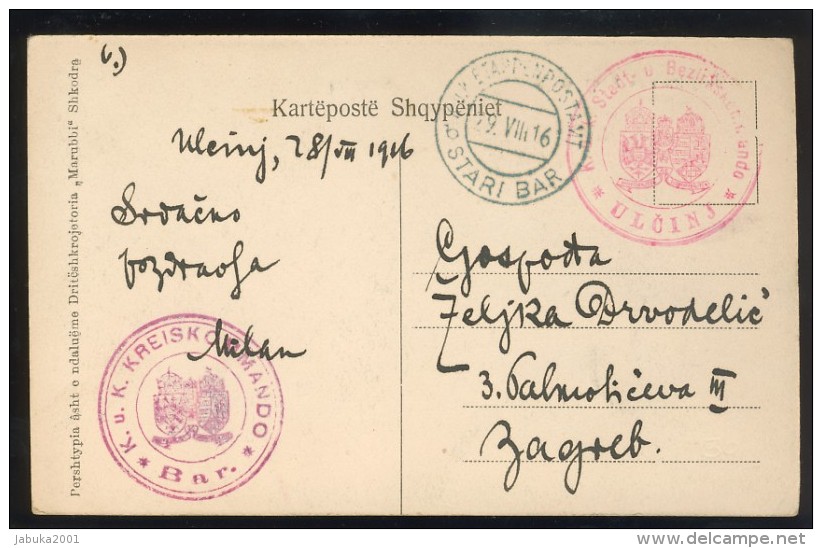 6.)
Kartëpostë Shqypëniet
Ulcinj, 28/VIII 1916
Srdačno
pozdravlja
Milan
Gospođa
Željka Drvodelić
3. Palmotićeva III
Zagreb.
K.u.K. ETAPPENPOSTAMT
29.VIII.16
STARI BAR
Stadt- u. Bezirkskommando
* ULČINJ *
K. u. K. KREISKOMMANDO
* Bar. *
Pershtypia âsht e ndaluëme Dritëshkrojetoria „Marubbi“ Shkodra
jabuka2001
delcampe.net